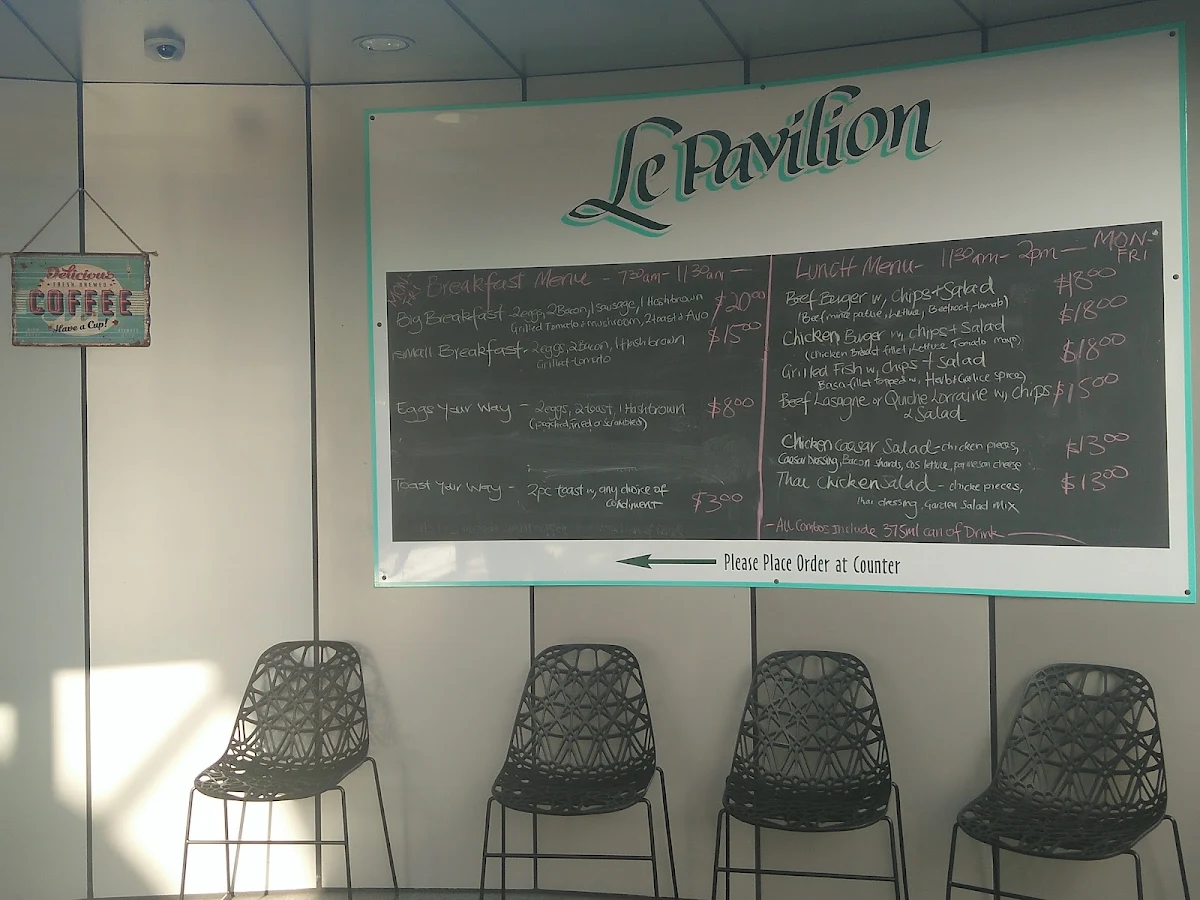 Delicious
FRESH BREWED
COFFEE
Have a Cup!
Le Pavilion
Breakfast Menu - 7³⁰am - 11³⁰am —
Big Breakfast - 2eggs, 2Bacon, 1 Sausage, 1 Hashbrown $20⁰⁰
Grilled Tomato & mushroom, 2 toast & Avo
Small Breakfast - 2eggs, 2Bacon, 1 Hashbrown $15⁰⁰
Grilled tomato
Eggs Your Way - 2eggs, 2 toast, 1 Hashbrown $8⁰⁰
(poached, fried or scrambled)
Toast Your Way - 2pc toast w, any choice of
condiment $3⁰⁰
Lunch Menu - 11³⁰am - 2pm — MON-
FRI
Beef Burger w, Chips + Salad $18⁰⁰
(Beef mince pattie, Lettuce, Beetroot, tomato)
Chicken Burger w, chips + Salad $18⁰⁰
(Chicken Breast fillet, Lettuce Tomato mayo)
Grilled Fish w, chips + salad $18⁰⁰
Basa fillet topped w, Herb & Garlice spice)
Beef Lasagne or Quiche Lorraine w, chips $15⁰⁰
& Salad
Chicken Caesar Salad - chicken pieces, $13⁰⁰
Caesar Dressing, Bacon shards, cos lettuce, parmesan cheese
Thai Chicken Salad - chicken pieces, $13⁰⁰
thai dressing, Garden Salad mix
- All Combos Include 375ml can of Drink
Please Place Order at Counter